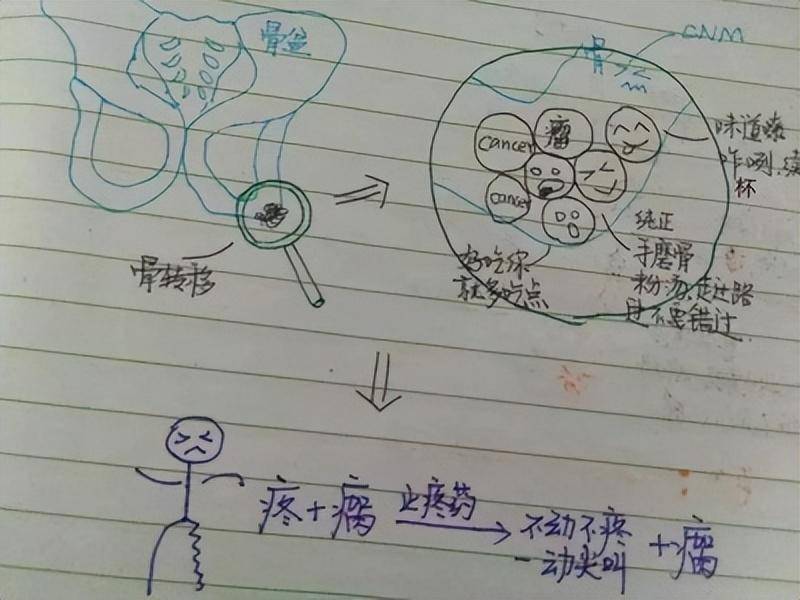 骨盆
骨转移
骨
CNM
cancer
瘤
cancer
味道嗦
咋咧,续
杯
好吃你
就多吃点
纯正
手磨骨
粉汤,走过路
过不要错过
疼+瘤 止疼药 不动不疼
一动尖叫 +瘤